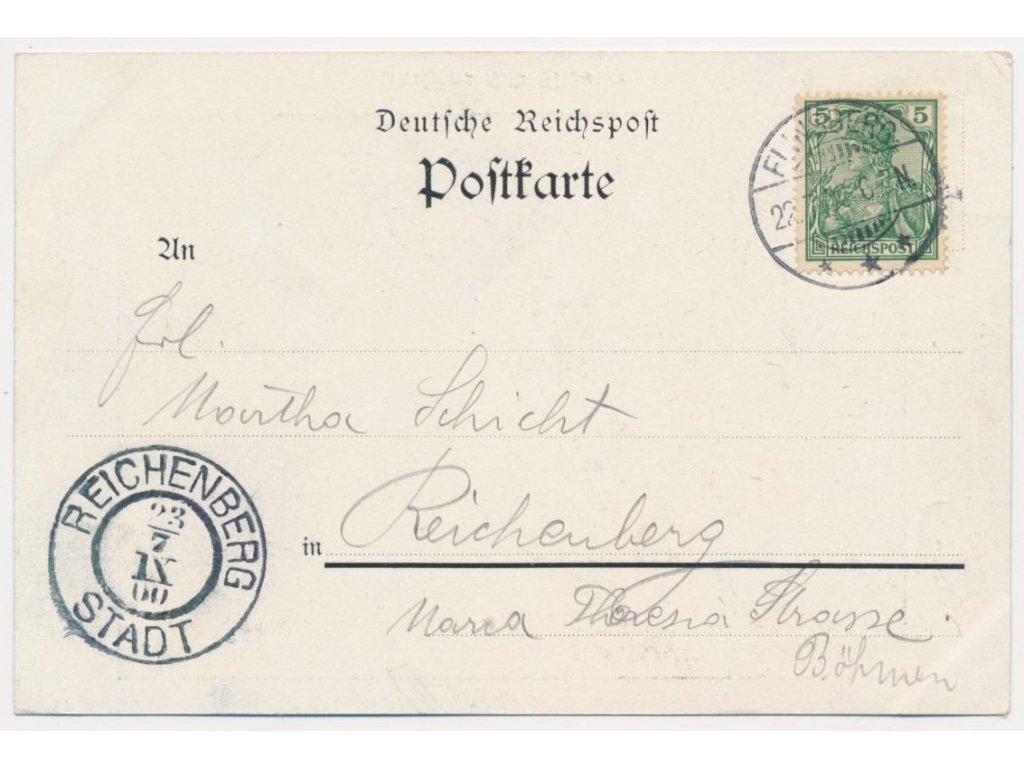 Deutsche Reichspost
Postkarte
5 5
REICHSPOST
An
Frl.
Martha Schicht
in Reichenberg
Maria Theresia Strasse.
Böhmen
REICHENBERG
23
7
IX
00
STADT